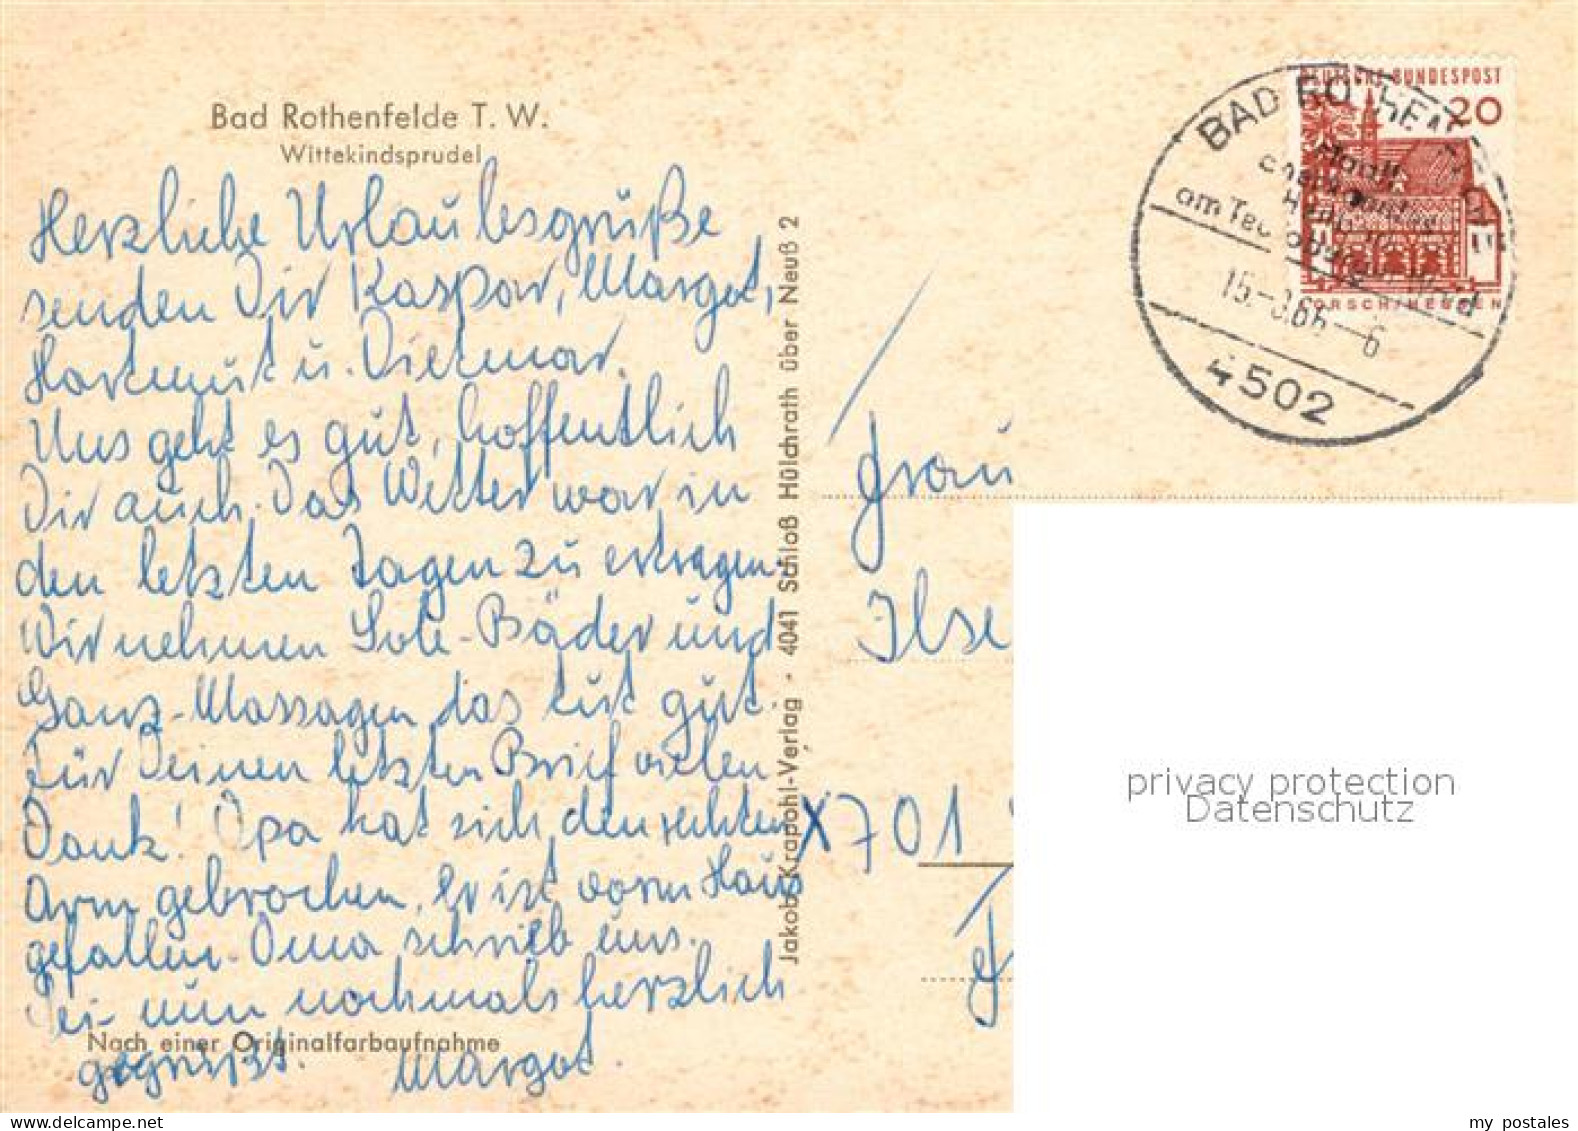 Bad Rothenfelde T. W.
Wittekindsprudel
Herzliche Urlaubsgrüße
senden Dir Kaspar, Margot,
Hartmut u. Dietmar.
Uns geht es gut, hoffentlich
Dir auch. Das Wetter war in
den letzten Tagen zu ertragen.
Wir nehmen Sole-Bäder und
Ganz-Massagen, das tut gut.
Für Deinen letzten Brief vielen
Dank! Opa hat sich den rechten
Arm gebrochen, er ist vorm Haus
gefallen. Oma schrieb uns.
Sei nun nochmals herzlich
gegrüßt. Margot.
Nach einer Originalfarbaufnahme
Jakob Krapohl-Verlag · 4041 Schloß Hülchrath über Neuß 2
DEUTSCHE BUNDESPOST
20
LORSCH/HESSEN
BAD ROTHENFELDE
am Teutoburger Wald
15.-3.66-6
4502
Frau
Ilse
X701
privacy protection
Datenschutz
my postales